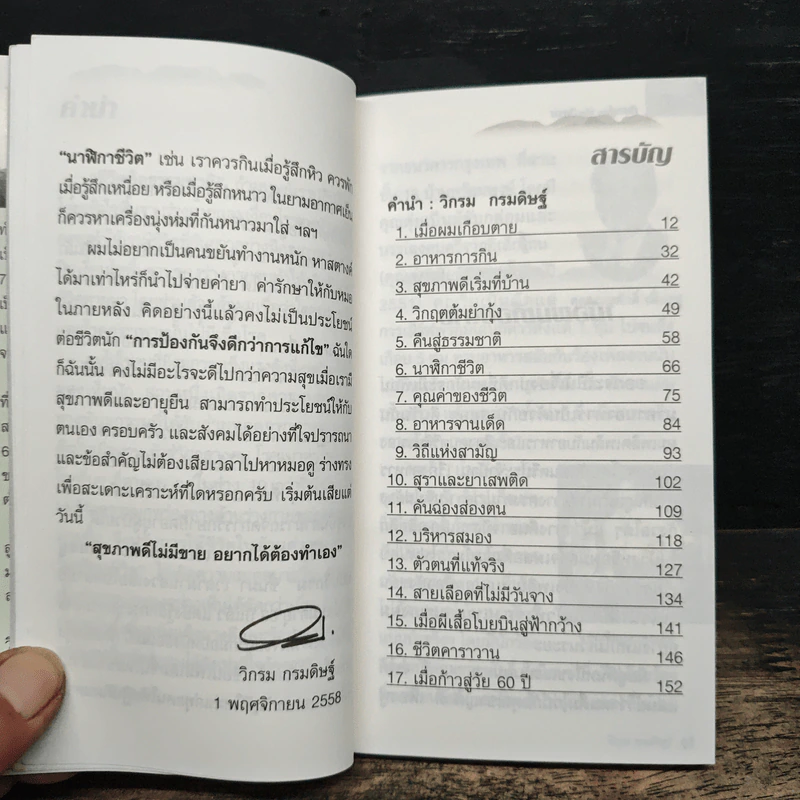 “นาฬิกาชีวิต” เช่น เราควรกินเมื่อรู้สึกหิว ควรพัก
เมื่อรู้สึกเหนื่อย หรือเมื่อรู้สึกหนาว ในยามอากาศเย็น
ก็ควรหาเครื่องนุ่งห่มที่กันหนาวมาใส่ ฯลฯ
ผมไม่อยากเป็นคนขยันทำงานหนัก หาสตางค์
ได้มาเท่าไหร่ก็นำไปจ่ายค่ายา ค่ารักษาให้กับหมอ
ในภายหลัง คิดอย่างนี้แล้วคงไม่เป็นประโยชน์
ต่อชีวิตนัก “การป้องกันจึงดีกว่าการแก้ไข” ฉันใด
ก็ฉันนั้น คงไม่มีอะไรจะดีไปกว่าความสุขเมื่อเรามี
สุขภาพดีและอายุยืน สามารถทำประโยชน์ให้กับ
ตนเอง ครอบครัว และสังคมได้อย่างที่ใจปรารถนา
และข้อสำคัญไม่ต้องเสียเวลาไปหาหมอดู ร่างทรง
เพื่อสะเดาะเคราะห์ที่ใดหรอกครับ เริ่มต้นเสียแต่
วันนี้
“สุขภาพดีไม่มีขาย อยากได้ต้องทำเอง”
วิกรม กรมดิษฐ์
1 พฤศจิกายน 2558
สารบัญ
คำนำ : วิกรม กรมดิษฐ์
1. เมื่อผมเกือบตาย 12
2. อาหารการกิน 32
3. สุขภาพดีเริ่มที่บ้าน 42
4. วิกฤตต้มยำกุ้ง 49
5. คืนสู่ธรรมชาติ 58
6. นาฬิกาชีวิต 66
7. คุณค่าของชีวิต 75
8. อาหารจานเด็ด 84
9. วิถีแห่งสามัญ 93
10. สุราและยาเสพติด 102
11. คันฉ่องส่องตน 109
12. บริหารสมอง 118
13. ตัวตนที่แท้จริง 127
14. สายเลือดที่ไม่มีวันจาง 134
15. เมื่อผีเสื้อโบยบินสู่ฟ้ากว้าง 141
16. ชีวิตคาราวาน 146
17. เมื่อก้าวสู่วัย 60 ปี 152